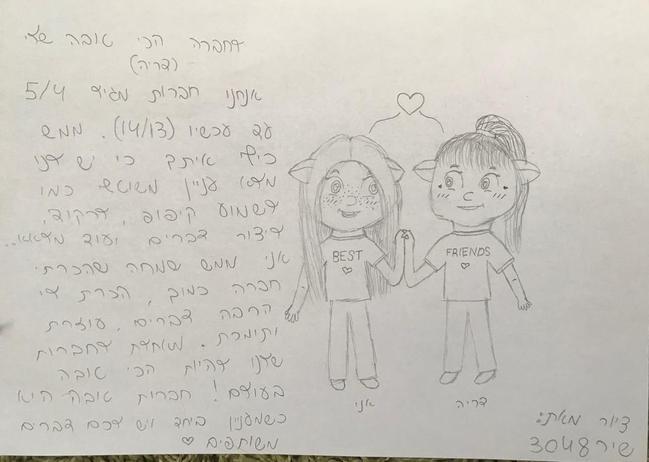 לחברה הכי טובה שלי
(דריה)
אנחנו חברות מגיל 5/4
עד עכשיו (14/13). ממש
כיף איתך כי יש לנו
מלא עניין משותף כמו
לשמוע קיפופ, לרקוד,
ליצור דברים ועוד מלאאא..
אני ממש שמחה שהכרתי
חברה כמוך, הכרת לי
הרבה דברים, עוזרת
ותומכת. מאחלת לחברות
שלנו להיות הכי טובה
בעולם! חברות טובה היא
כשמעניין ביחד ויש לכם דברים
משותפים ♡
BEST
FRIENDS
אני
דריה
ציור מאת:
שיר3048